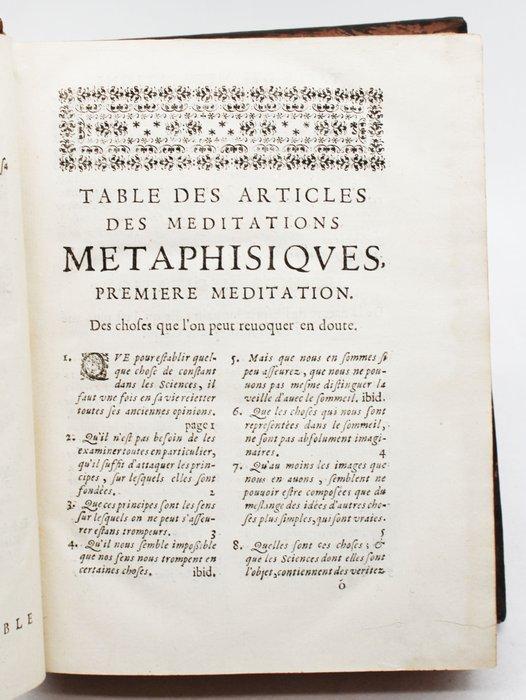 TABLE DES ARTICLES
DES MEDITATIONS
METAPHISIQVES,
PREMIERE MEDITATION.
Des choses que l'on peut reuoquer en doute.
1. QVE pour establir quel-
que chose de constant
dans les Sciences, il
faut vne fois en sa vie reietter
toutes ses anciennes opinions.
page 1
2. Qu'il n'est pas besoin de les
examiner toutes en particulier,
qu'il suffit d'attaquer les prin-
cipes, sur lesquels elles sont
fondées. 2
3. Que ces principes sont les sens
sur lesquels on ne peut s'assu-
rer estans trompeurs. 3
4. Qu'il nous semble impossible
que nos sens nous trompent en
certaines choses. ibid.
5. Mais que nous en sommes si
peu asseurez, que nous ne pou-
uons pas mesme distinguer la
veille d'auec le sommeil. ibid.
6. Que les choses qui nous sont
representées dans le sommeil,
ne sont pas absolument imagi-
naires. 4
7. Qu'au moins les images que
nous en auons, semblent ne
pouuoir estre composées que du
meslange des idées d'autres cho-
ses plus simples, qui sont vraies.
5
8. Quelles sont ces choses; &
que les Sciences dont elles sont
l'objet, contiennent des veritez
ó
BLE